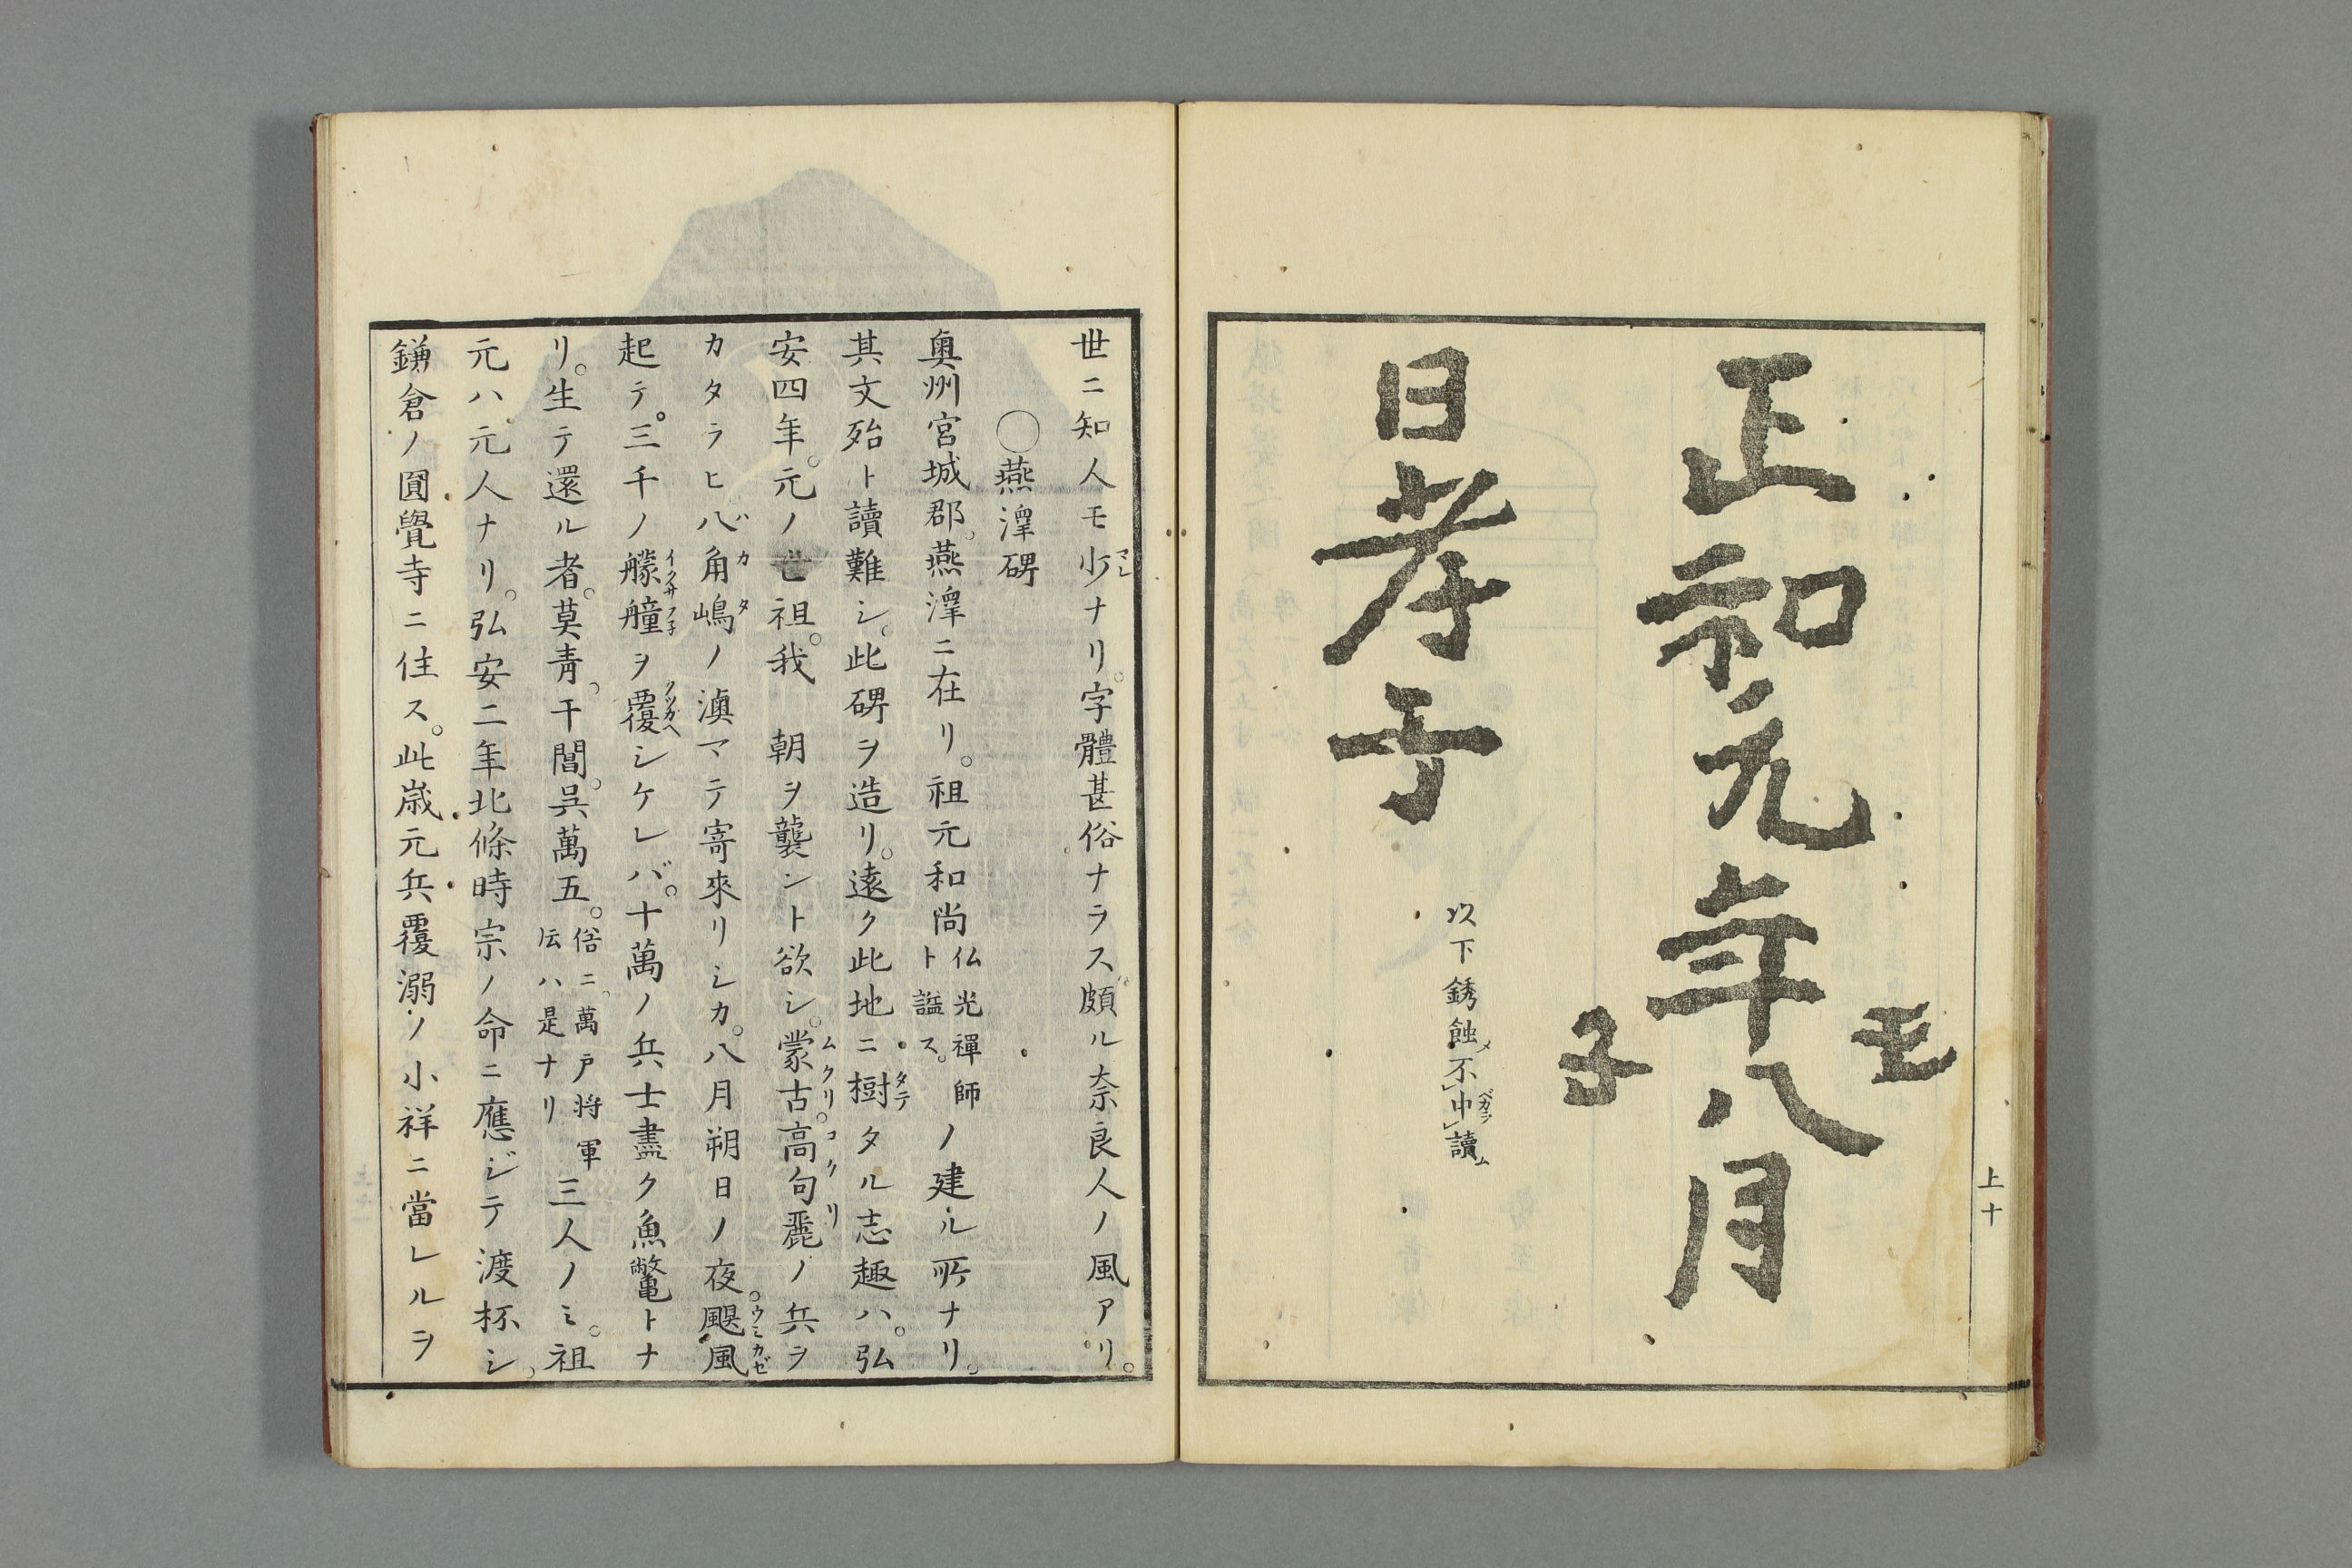 正和元年八月
壬
子
日孝子
以下銹蝕メ不中讀ム
ベカラ
上十
世ニ知人モ少ナリ。字體甚俗ナラス。頗ル奈良人ノ風アリ。
マレ
〇燕澤碑
奥州宮城郡。燕澤ニ在リ。祖元和尚仏光禪師ト謚ス。ノ建ル所ナリ。
其文殆ト讀難シ。此碑ヲ造リ。遠ク此地ニ樹タル志趣ハ。弘
タテ
安四年。元ノ世祖。我 朝ヲ襲ント欲シ。蒙古。高句麗ノ兵ヲ
ムクリ コクリ
カタラヒ。八角嶋ノ澳マテ寄來リシカ。八月朔日ノ夜。颶風
ハカタ ウミカゼ
起テ。三千ノ艨艟ヲ覆シケレバ。十萬ノ兵士盡ク魚鼈トナ
イクサフネ クツガヘ
リ。生テ還ル者。莫青。干閶。呉萬五。俗ニ。萬戸将軍伝ハ是ナリ三人ノミ。祖
元ハ元人ナリ。弘安二年北條時宗ノ命ニ應ジテ渡杯シ。
鎌倉ノ圓覺寺ニ住ス。此歳元兵覆溺ノ小祥ニ當レルヲ